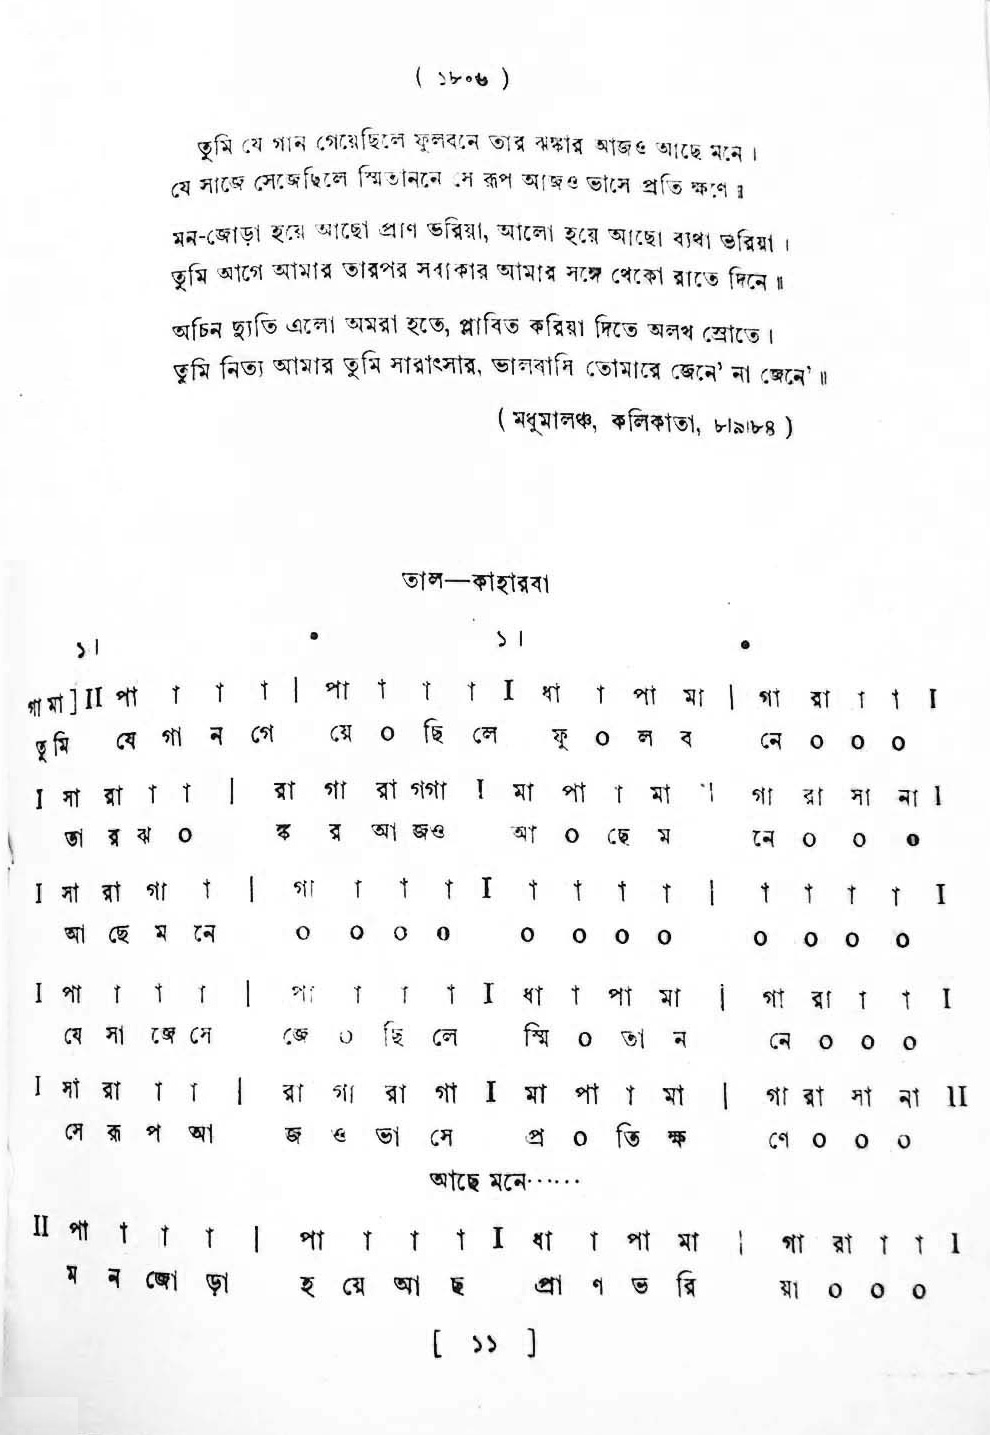 ( ১৮০৬ )
তুমি যে গান গেয়েছিলে ফুলবনে তার ঝঙ্কার আজও আছে মনে ।
যে সাজে সেজেছিলে স্মিতাননে সে রূপ আজও ভাসে প্রতি ক্ষণে ॥
মন-জোড়া হয়ে আছো প্রাণ ভরিয়া, আলো হয়ে আছো ব্যথা ভরিয়া ।
তুমি আগে আমার তারপর সবাকার আমার সঙ্গে থেকো রাতে দিনে ॥
অচিন দ্যুতি এলো অমরা হতে, প্লাবিত করিয়া দিতে অলখ স্রোতে ।
তুমি নিত্য আমার তুমি সারাৎসার, ভালবাসি তোমারে জেনে' না জেনে' ॥
( মধুমালঞ্চ, কলিকাতা, ৮।৯।৮৪ )
তাল—কাহারবা
১। • ১। •
গা মা ] II পা া া া | পা া া া I ধা া পা মা | গা রা া া I
তু মি যে গা ন গে য়ে ০ ছি লে ফু ০ ল ব নে ০ ০ ০
I সা রা া া | রা গা রা গগা I মা পা া মা | গা রা সা না I
তা র ঝ ০ ঙ্ক র আ জও আ ০ ছে ম নে ০ ০ ০
I সা রা গা া | গা া া া I া া া া | া া া া I
আ ছে ম নে ০ ০ ০ ০ ০ ০ ০ ০ ০ ০ ০ ০
I পা া া া | পা া া া I ধা া পা মা | গা রা া া I
যে সা জে সে জে ০ ছি লে স্মি ০ তা ন নে ০ ০ ০
I সা রা া া | রা গা রা গা I মা পা া মা | গা রা সা না II
সে রূ প আ জ ও ভা সে প্র ০ তি ক্ষ ণে ০ ০ ০
আছে মনে······
II পা া া া | পা া া া I ধা া পা মা | গা রা া া I
ম ন জো ড়া হ য়ে আ ছ প্রা ণ ভ রি য়া ০ ০ ০
[ ১১ ]